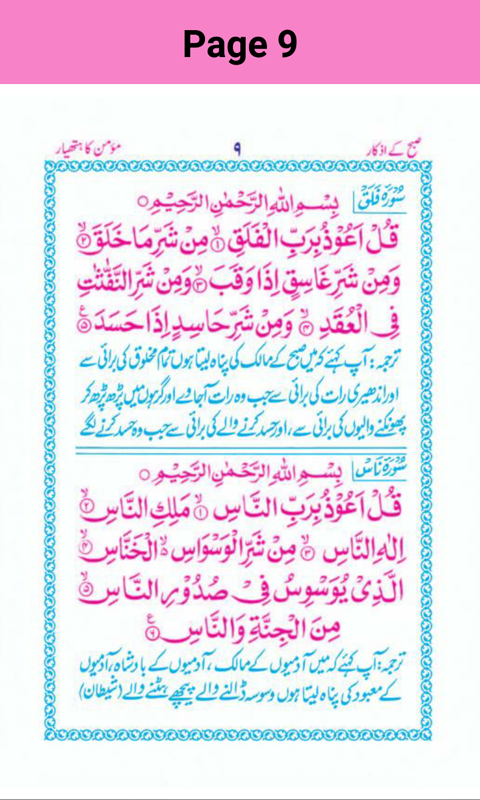 Page 9
صبح کے اذکار ۹ مؤمن کا ہتھیار
سُوْرَۃ فَلَق بِسْمِ اللّٰهِ الرَّحْمٰنِ الرَّحِيْمِ ○
قُلْ اَعُوْذُ بِرَبِّ الْفَلَقِ ۙ﴿۱﴾ مِنْ شَرِّ مَا خَلَقَ ۙ﴿۲﴾
وَمِنْ شَرِّ غَاسِقٍ اِذَا وَقَبَ ۙ﴿۳﴾ وَمِنْ شَرِّ النَّفّٰثٰتِ
فِى الْعُقَدِ ۙ﴿۴﴾ وَمِنْ شَرِّ حَاسِدٍ اِذَا حَسَدَ ﴿۵﴾ ع
ترجمہ: آپ کہئے کہ میں صبح کے مالک کی پناہ لیتا ہوں تمام مخلوق کی برائی سے
اور اندھیری رات کی برائی سے جب وہ رات آجاوے اور گرہوں میں پڑھ پڑھ کر
پھونکنے والیوں کی برائی سے، اور حسد کرنے والے کی برائی سے جب وہ حسد کرنے لگے
سُوْرَۃ نَاس بِسْمِ اللّٰهِ الرَّحْمٰنِ الرَّحِيْمِ ○
قُلْ اَعُوْذُ بِرَبِّ النَّاسِ ۙ﴿۱﴾ مَلِكِ النَّاسِ ۙ﴿۲﴾
اِلٰهِ النَّاسِ ۙ﴿۳﴾ مِنْ شَرِّ الْوَسْوَاسِ ۙ الْخَنَّاسِ ۙ﴿۴﴾
الَّذِىْ يُوَسْوِسُ فِىْ صُدُوْرِ النَّاسِ ۙ﴿۵﴾
مِنَ الْجِنَّةِ وَالنَّاسِ ﴿۶﴾ ع
ترجمہ: آپ کہئے کہ میں آدمیوں کے مالک، آدمیوں کے بادشاہ، آدمیوں
کے معبود کی پناہ لیتا ہوں وسوسہ ڈالنے والے پیچھے ہٹنے والے (شیطان)